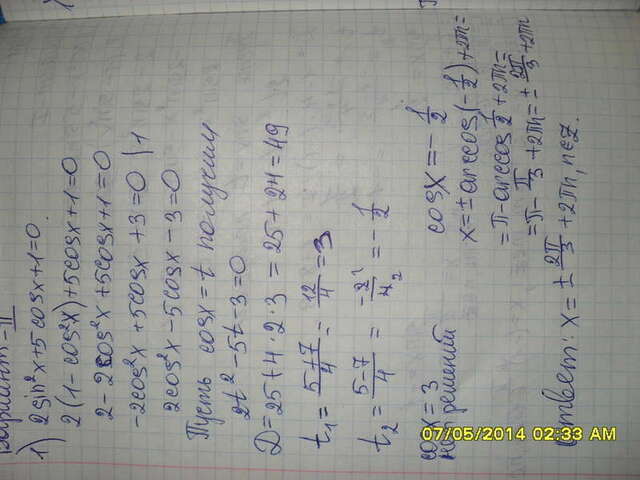 Вариант-II
1) 2sin²x+5cosx+1=0.
2(1-cos²x)+5cosx+1=0
2-2cos²x+5cosx+1=0
-2cos²x+5cosx+3=0 |1
2cos²x-5cosx-3=0
Пусть cosx=t получим
2t²-5t-3=0
D=25+4·2·3=25+24=49
t₁=5+7/4=12/4=3
t₂=5-7/4=-2¹/4₂=-1/2
cosx=3
нет решений
cosx=-1/2
x=±arccos(-1/2)+2πn=
=π-arccos1/2+2πn=
=π-π/3+2πn=±2π/3+2πn
Ответ: x=±2π/3+2πn, n∈Z.
07/05/2014 02:33 AM